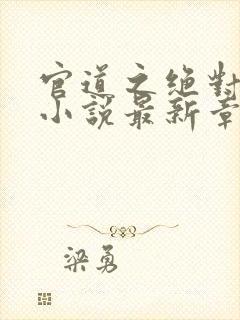 官道之绝對
小說最新章
梁勇